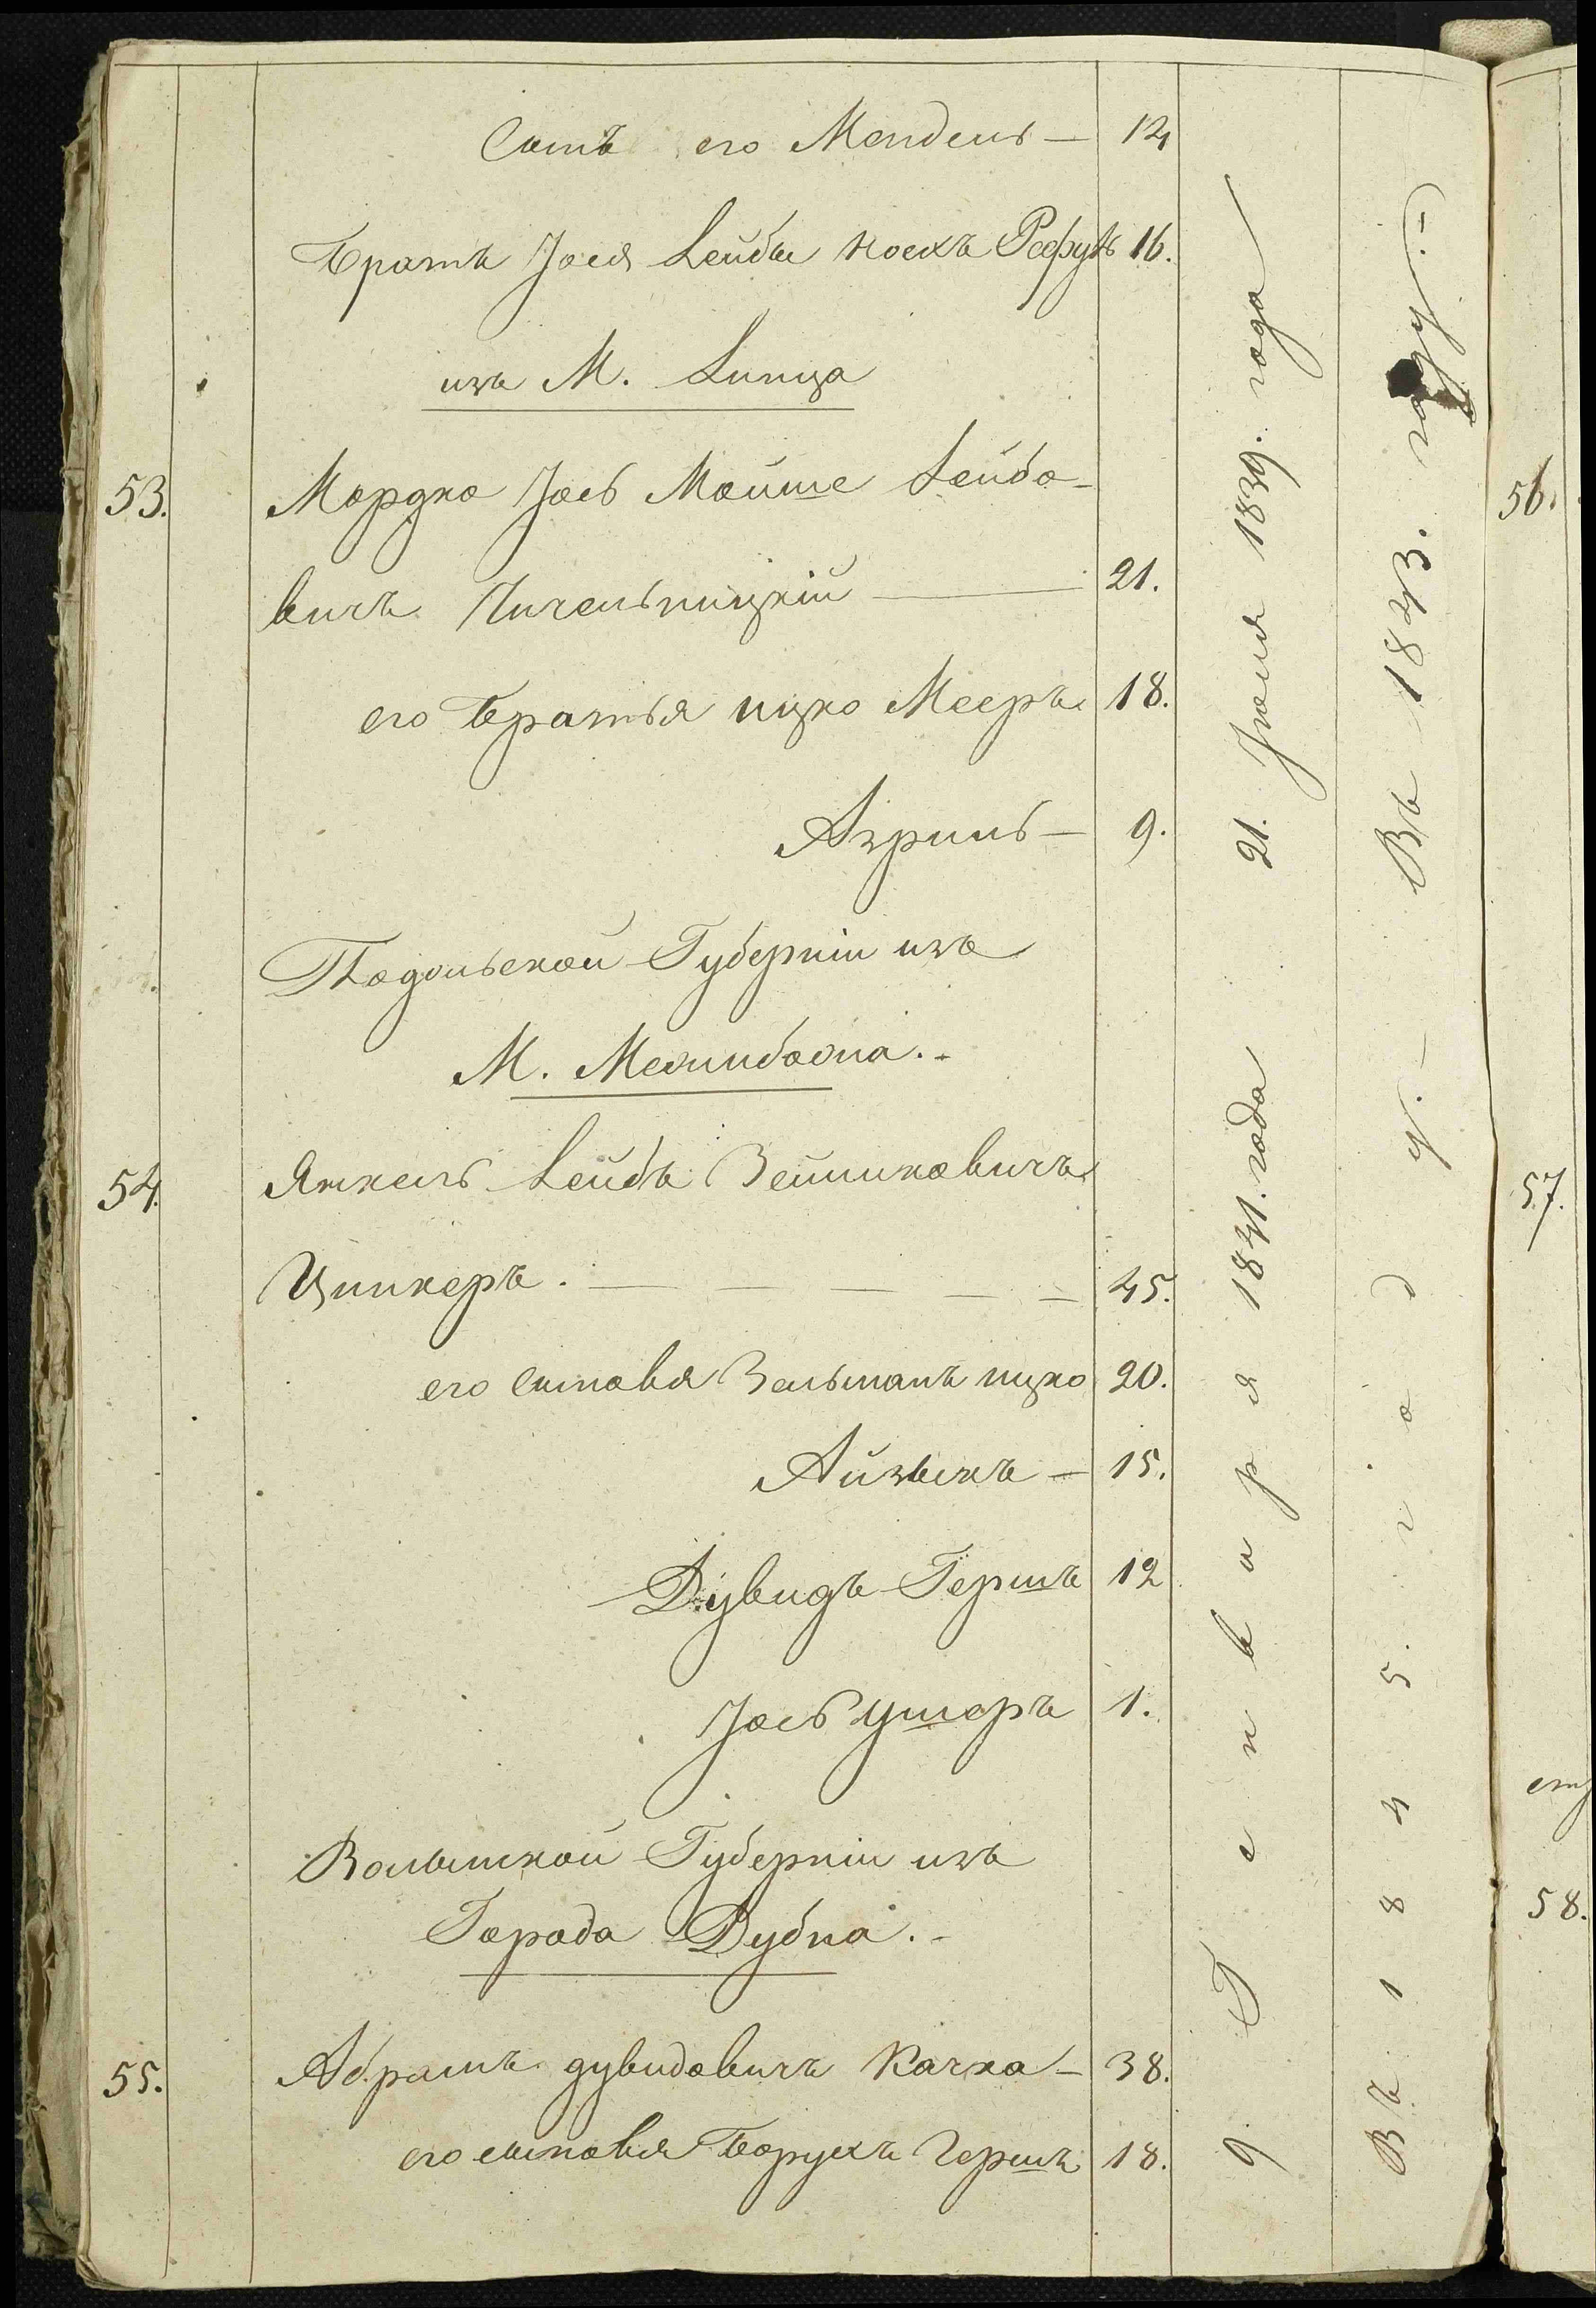 Сынъ его Мендель — 12
Братъ Іося Лейбы Носхъ 16.
изъ М. Липца
53. Мордко Іось Мойше Лейбо-
вичъ Пичельницкій — 21.
его Братья ицко Мееръ 18.
Азриль — 9.
Подольской Губерніи изъ
М. Межибожа.
54. Янкель Лейбъ Зейликовичъ
Цинкеръ. — — — — 45.
его сыновья Зельманъ ицко 20.
Айзыкъ — 15.
Дувидъ Гершъ 12
Іось Ушеръ 1.
Волынской Губерніи изъ
Города Дубна.
55. Абрамъ дувидовичъ Качка — 38.
его сыновья Борухъ Гершъ 18.
21. Іюля 1839. года
Въ 1843. году. —
9. Генваря 1841. года
Въ 1845. году. —
56.
57.
58.